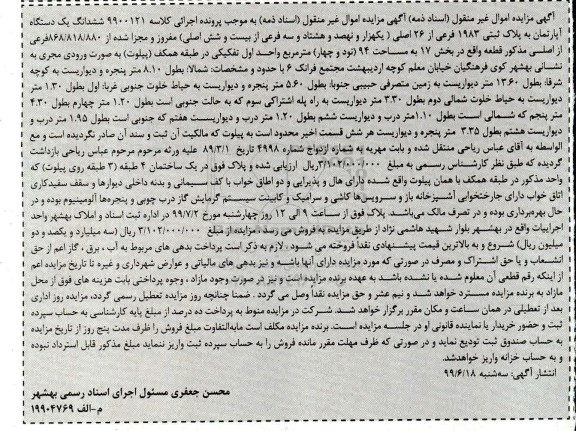 آگهی مزایده اموال غیر منقول (اسناد ذمه) آگهی مزایده اموال غیر منقول (اسناد ذمه) به موجب پرونده اجرائی کلاسه ۹۹۰۰۱۲۱ ششدانگ یک دستگاه
آپارتمان به پلاک ثبتی ۱۹۸۳ فرعی از ۲۶ اصلی ( یکهزار و نهصد و هشتاد و سه فرعی از بیست و شش اصلی) مفروز و مجزا شده از ۸۶۸/۸۱۸/۸۸۰فرعی
از اصلی مذکور قطعه واقع در بخش ۱۷ به مساحت ۹۴ (نود و چهار) مترمربع واحد اول تفکیکی در طبقه همکف (پیلوت) به صورت ورودی مجری به
نشانی بهشهر کوی فرهنگیان خیابان معلم کوچه اردیبهشت مجتمع فرانک ۶ با حدود و مشخصات: شمالا: بطول ۸.۱۰ متر پنجره و دیواریست به کوچه
شرقا: بطول ۱۳.۶۰ متر دیواریست به زمین متصرفی حبیبی جنوبا: بطول ۵.۶۰ متر پنجره و دیواریست به حیاط خلوت جنوبی غربا: اول بطول ۱.۳۰ متر
دیواریست به حیاط خلوت شمالی دوم بطول ۳.۳۰ متر دیواریست به راه پله اشتراکی سوم که به حالت جنوبی است بطول ۱.۲۰ متر چهارم بطول ۴.۳۰
متر پنجم که شمالی است بطول ۱.۱۰متر درب و دیواریست ششم بطول ۱.۲۰ متر درب و دیواریست هفتم که جنوبی است بطول ۱.۹۵ متر درب و
دیواریست هشتم بطول ۳.۳۵ متر پنجره و دیواریست هر شش قسمت اخیر محدود است به پیلوت که مالکیت آن ثبت و سند آن صادر نگردیده است و مع
الواسطه به آقای عباس ریاحی منتقل شده و بابت مهریه به شماره ازدواج شماره ۴۹۹۸ تاریخ ۸۹/۳/۱ علیه ورثه مرحوم عباس ریاحی بازداشت
گردیده که طبق نظر کارشناس رسمی به مبلغ ۳/۱۰۲/۰۰۰/۰۰۰ریال ارزیابی شده و پلاک فوق در یک ساختمان ۴ طبقه (۳ طبقه روی پیلوت) که
واحد مذکور در طبقه همکف با همان پیلوت واقع شده دارای هال و پذیرایی و دو اطاق خواب با کف سیمانی و بدنه داخلی دیوارها و سقف سفیدکاری
اتاق خواب دارای جارختخوابی آشپزخانه باز و سرویس‌ها کاشی و سرامیک و کابینت سیستم گرمایش گاز درب چوبی و پنجره‌ها آلومینیوم بوده و در
حال بهره‌برداری بوده و در تصرف مالک می‌باشد. پلاک فوق از ساعت ۹ الی ۱۲ روز چهارشنبه مورخ ۹۹/۷/۲ در اداره ثبت اسناد و املاک بهشهر واحد
اجراییات واقع در بهشهر بلوار شهید هاشمی نژاد از طریق مزایده به فروش می رسد. مزایده از مبلغ ۳/۱۰۲/۰۰۰/۰۰۰ ریال (سه میلیارد و یکصد و دو
میلیون ریال) شروع و به بالاترین قیمت پیشنهادی نقداً فروخته می شود . لازم به ذکر است پرداخت بدهی های مربوط به آب ، برق ، گاز اعم از حق
انشعاب و یا حق اشتراک و مصرف در صورتی که مورد مزایده دارای آنها باشد و نیز بدهی های مالیاتی و عوارض شهرداری و غیره تا تاریخ مزایده اعم
از اینکه رقم قطعی آن معلوم شده یا نشده باشد به عهده برنده مزایده است و نیز در صورت وجود مازاد ، وجوه پرداختی بابت هزینه های فوق از محل
مازاد به برنده مزایده مسترد خواهد شد و نیم عشر و حق مزایده نقداً وصل می گردد . ضمنا چنانچه روز مزایده تعطیل رسمی گردد، مزایده روز اداری
بعد از تعطیلی در همان ساعت و مکان مقرر برگزار خواهد شد. شرکت در مزایده منوط به پرداخت ده درصد از مبلغ پایه کارشناسی به حساب سپرده
ثبت و حضور خریدار یا نماینده قانونی او در جلسه مزایده است. برنده مزایده مکلف است مابه‌التفاوت مبلغ فروش را ظرف مدت پنج روز از تاریخ مزایده
به حساب صندوق ثبت تودیع نماید و در صورتی که ظرف مهلت مقرر مانده فروش را به حساب سپرده ثبت واریز ننماید مبلغ مذکور قابل استرداد نبوده
و به حساب خزانه واریز خواهدشد.
انتشار آگهی: سه‌شنبه ۹۹/۶/۱۸
محسن جعفری مسئول اجرای اسناد رسمی بهشهر
م-الف ۱۹۹۰۴۷۶۹